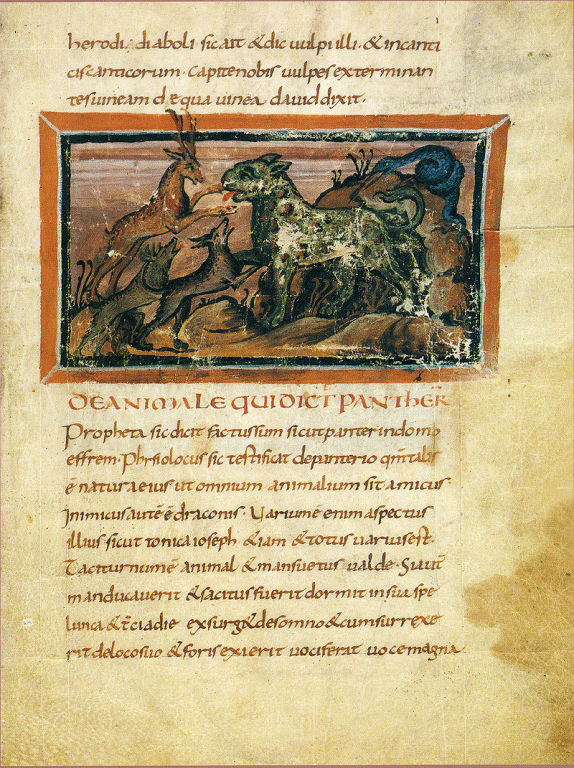 herodi, diaboli sic ait & dic vulpi illi· & incanti
cis canticorum· Capite nobis vulpes exterminan
tes vineam de qua vinea david dixit·
DE ANIMALE QUI DICIT PANTHER
Propheta sic dicit factus sum sicut panter in domo
effrem· Phisiolocus sic testificat de panterio qm talis
ē natura eius ut omnium animalium sit amicus·
Inimicus autē ē draconis· Varium ē enim aspectus
illius sicut tonica ioseph & iam & totus varius est·
Taciturnum ē animal & mansuetus valde· Si aut
manducaverit & saciatus fuerit dormit in sua spe
lunca & tercia die exsurg& de somno & cum surrexe
rit de loco suo & foris exierit vociferat voce magna